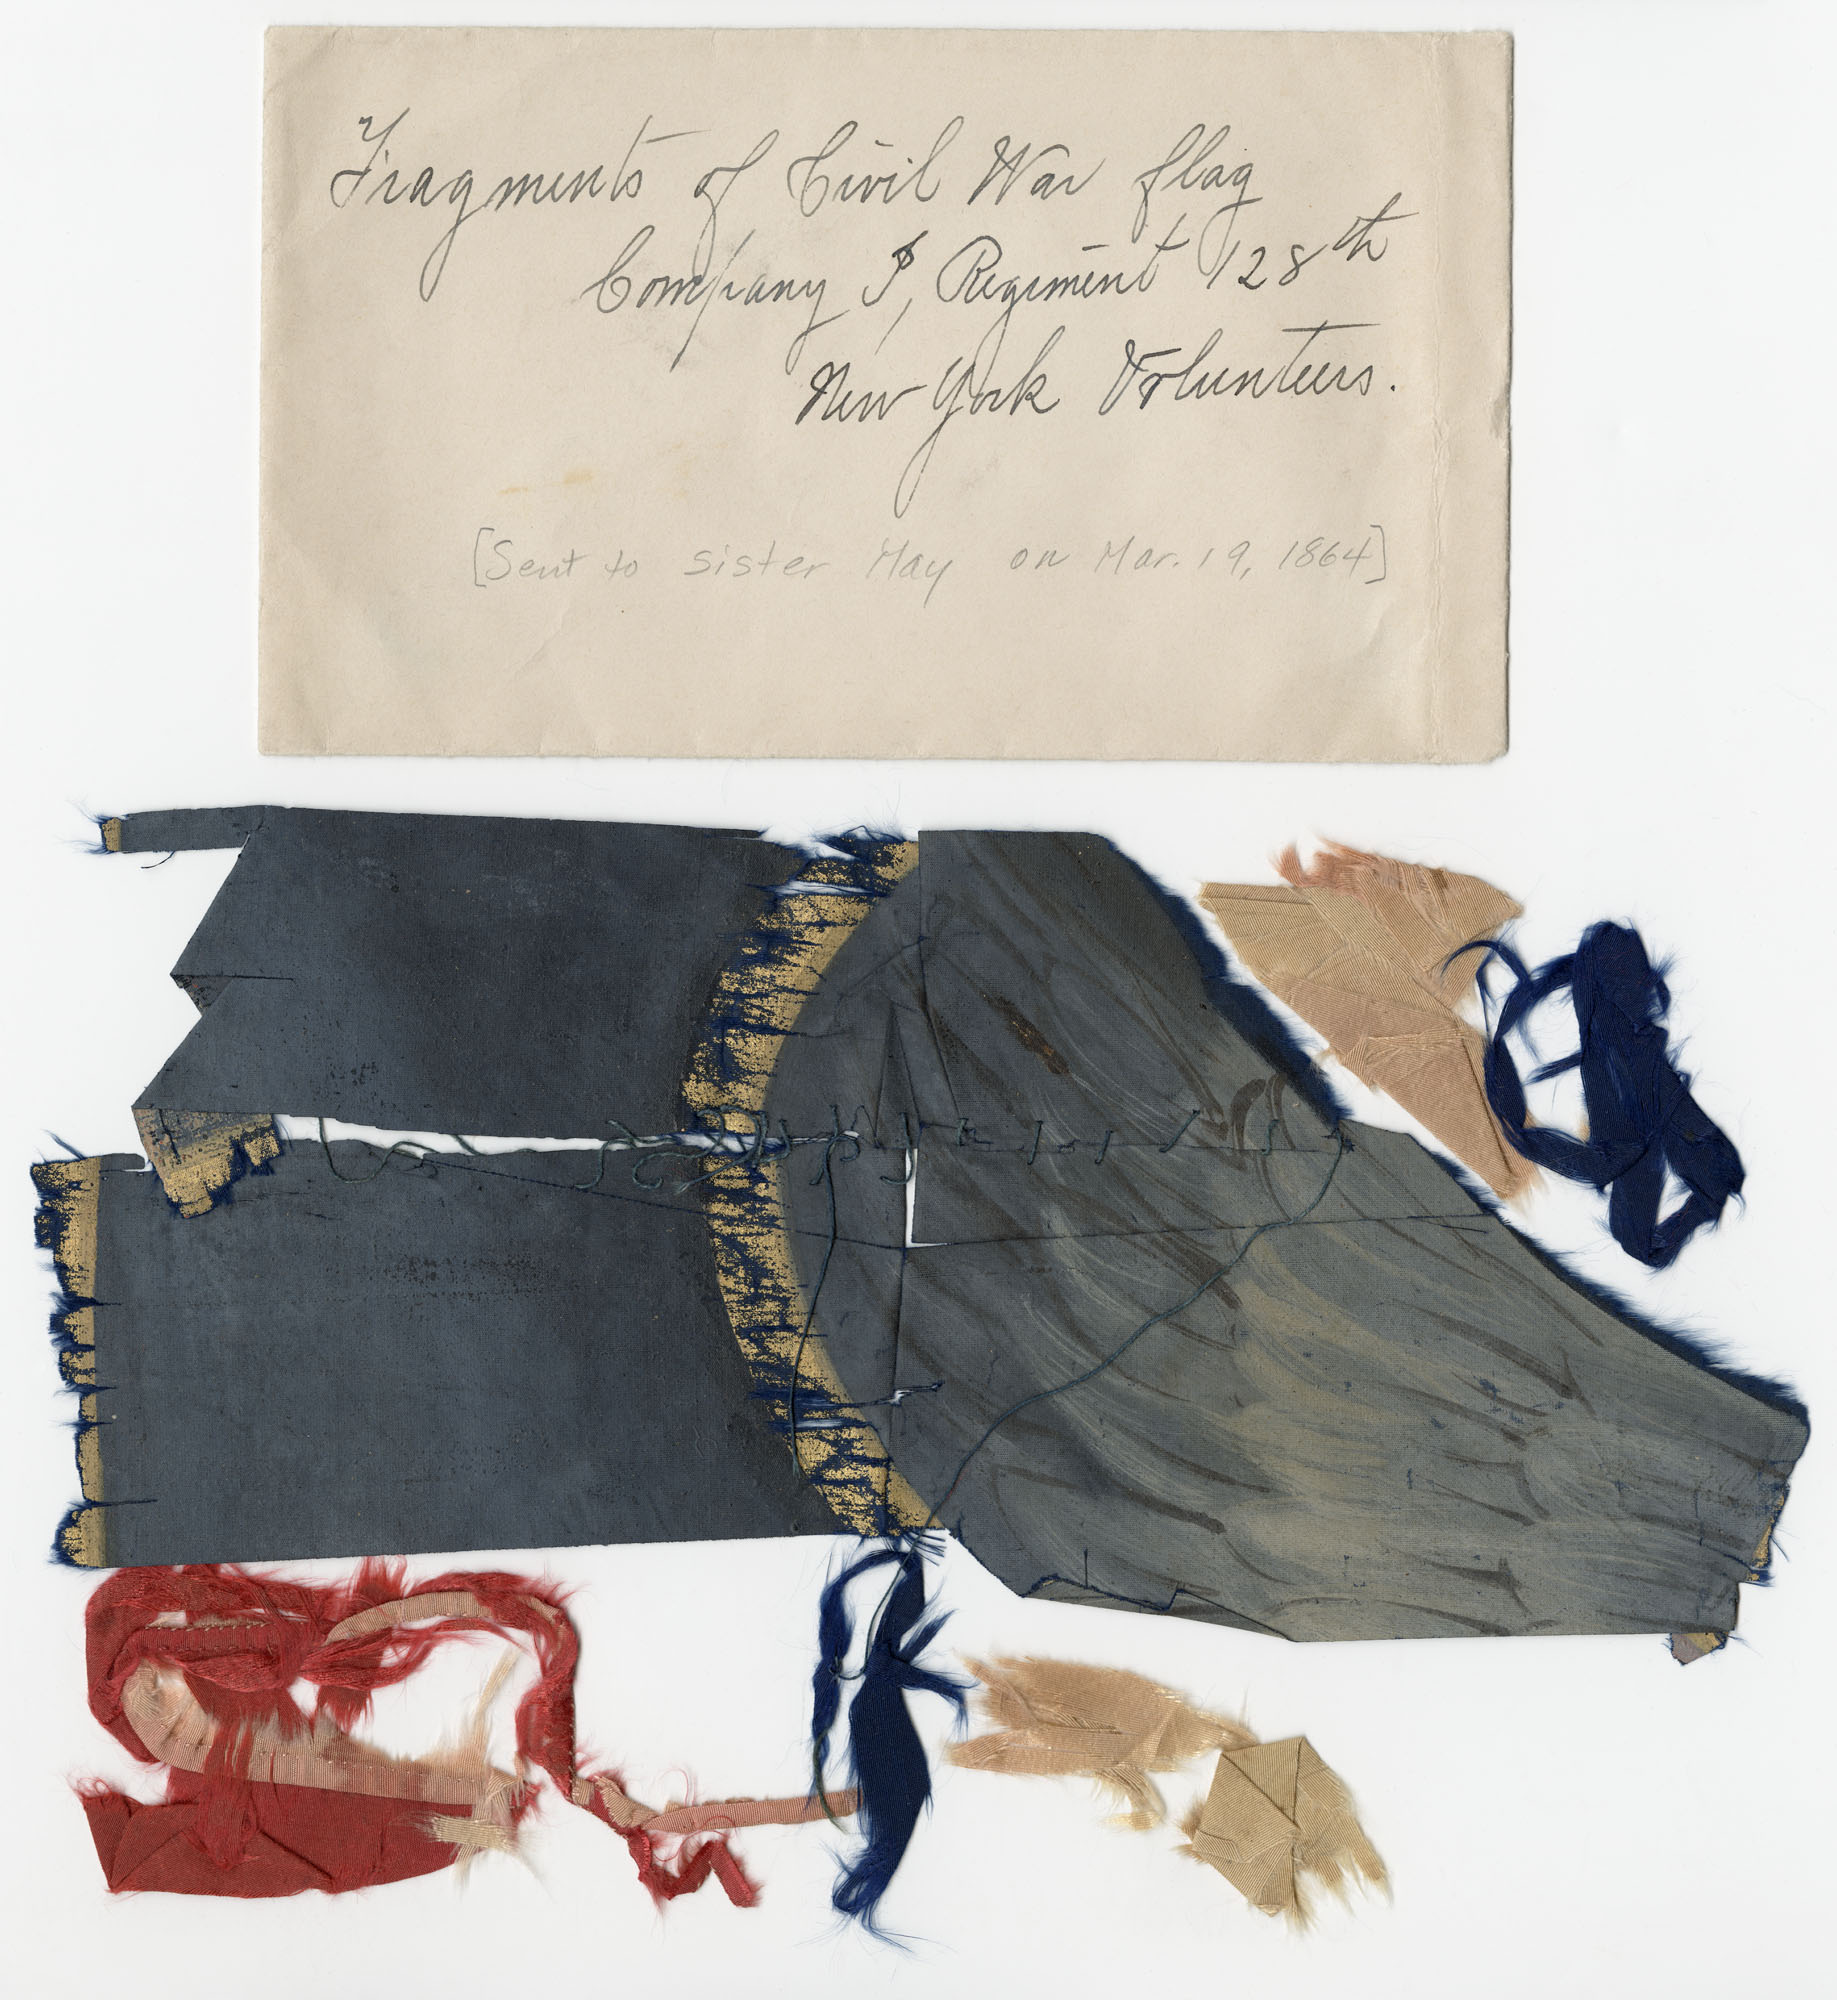 Fragments of Civil War flag
Company I, Regiment 128th
New York Volunteers.
[Sent to sister May on Mar. 19, 1864]